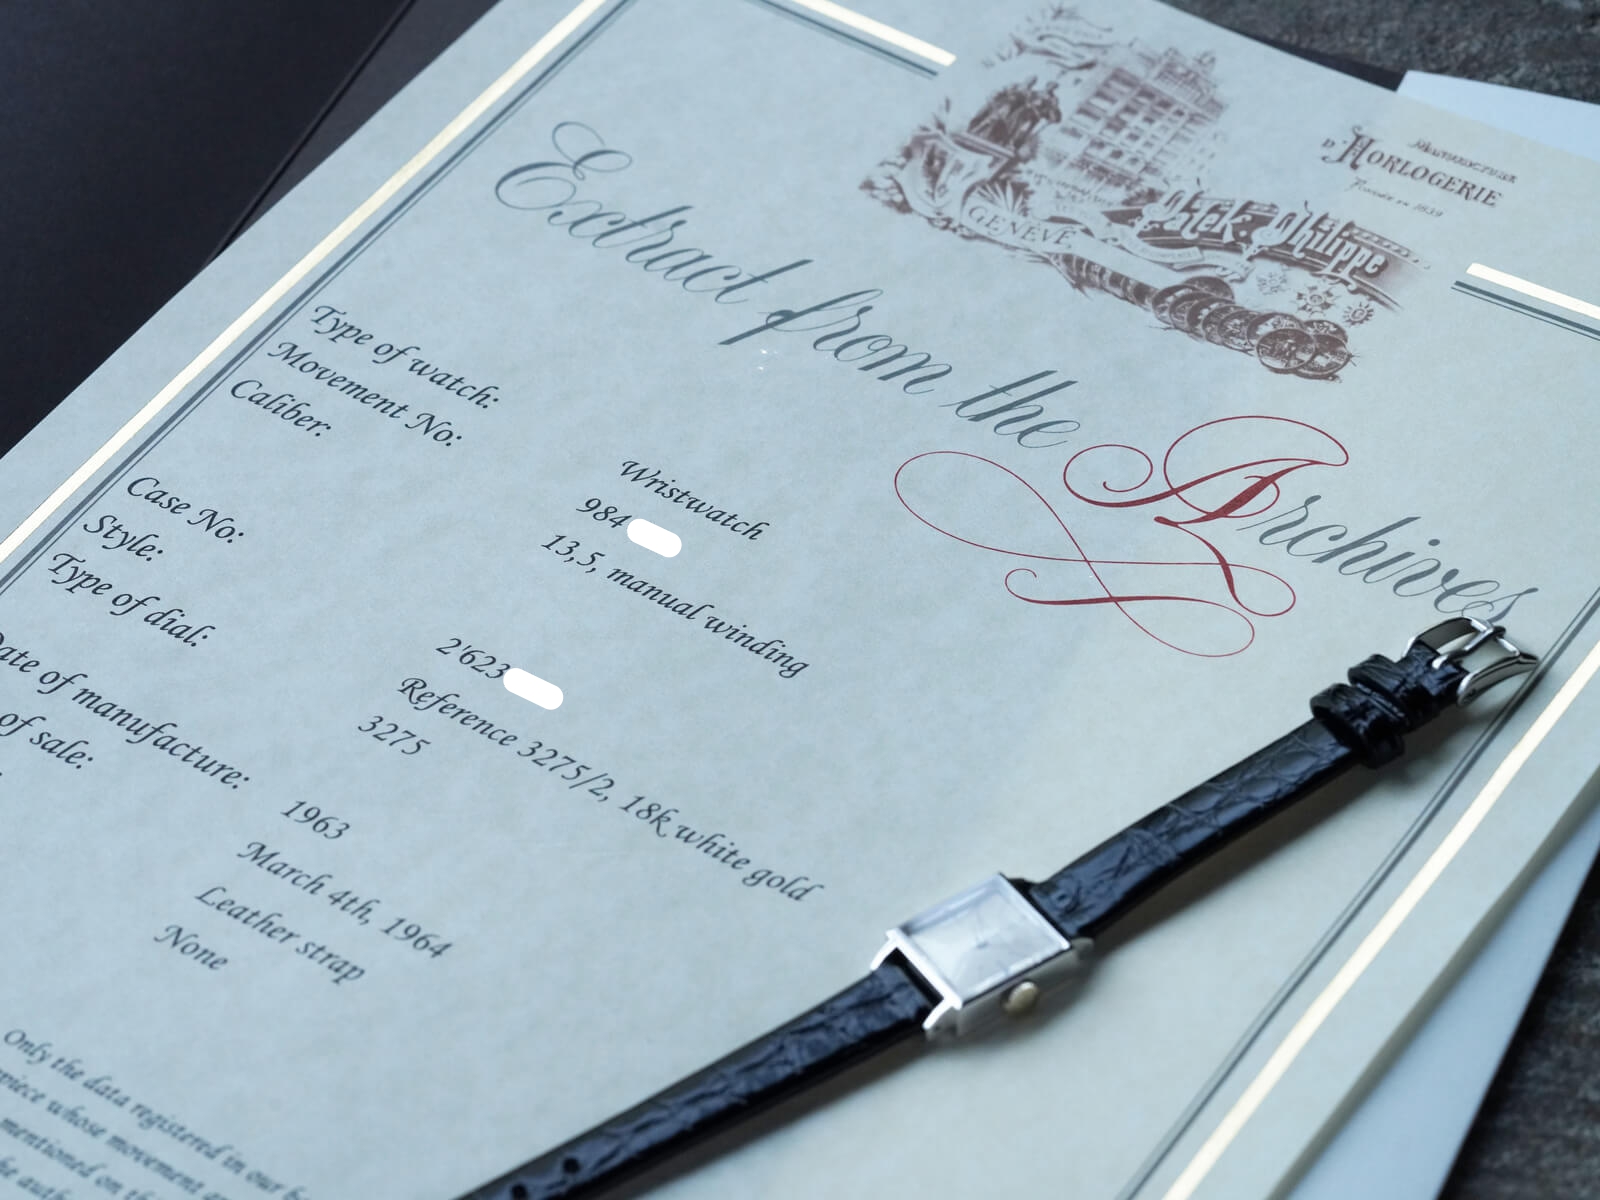 MANUFACTURE
D'HORLOGERIE
Fondée en 1839
GENÈVE
Patek Philippe
Extract from the Archives
Type of watch: Wristwatch
Movement No: 984
Caliber: 13,5, manual winding
Case No: 2'623
Style: Reference 3275/2, 18k white gold
Type of dial: 3275
ate of manufacture: 1963
of sale: March 4th, 1964
Leather strap
None
Only the data registered in our
piece whose movement
mentioned on